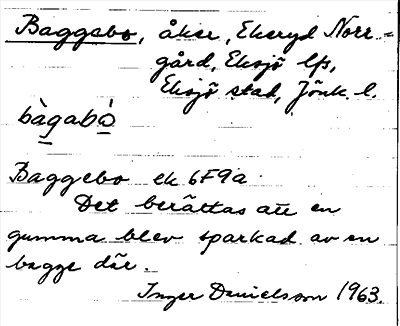 Baggabo, åker, Ekeryd Norr-
gård, Eksjö lfs,
Eksjö stad, Jönk. l.
bàgabò
Baggebo ek 6F9a
Det berättas att en
gumma blev sparkad av en
bagge där.
Inger Danielsson 1963.